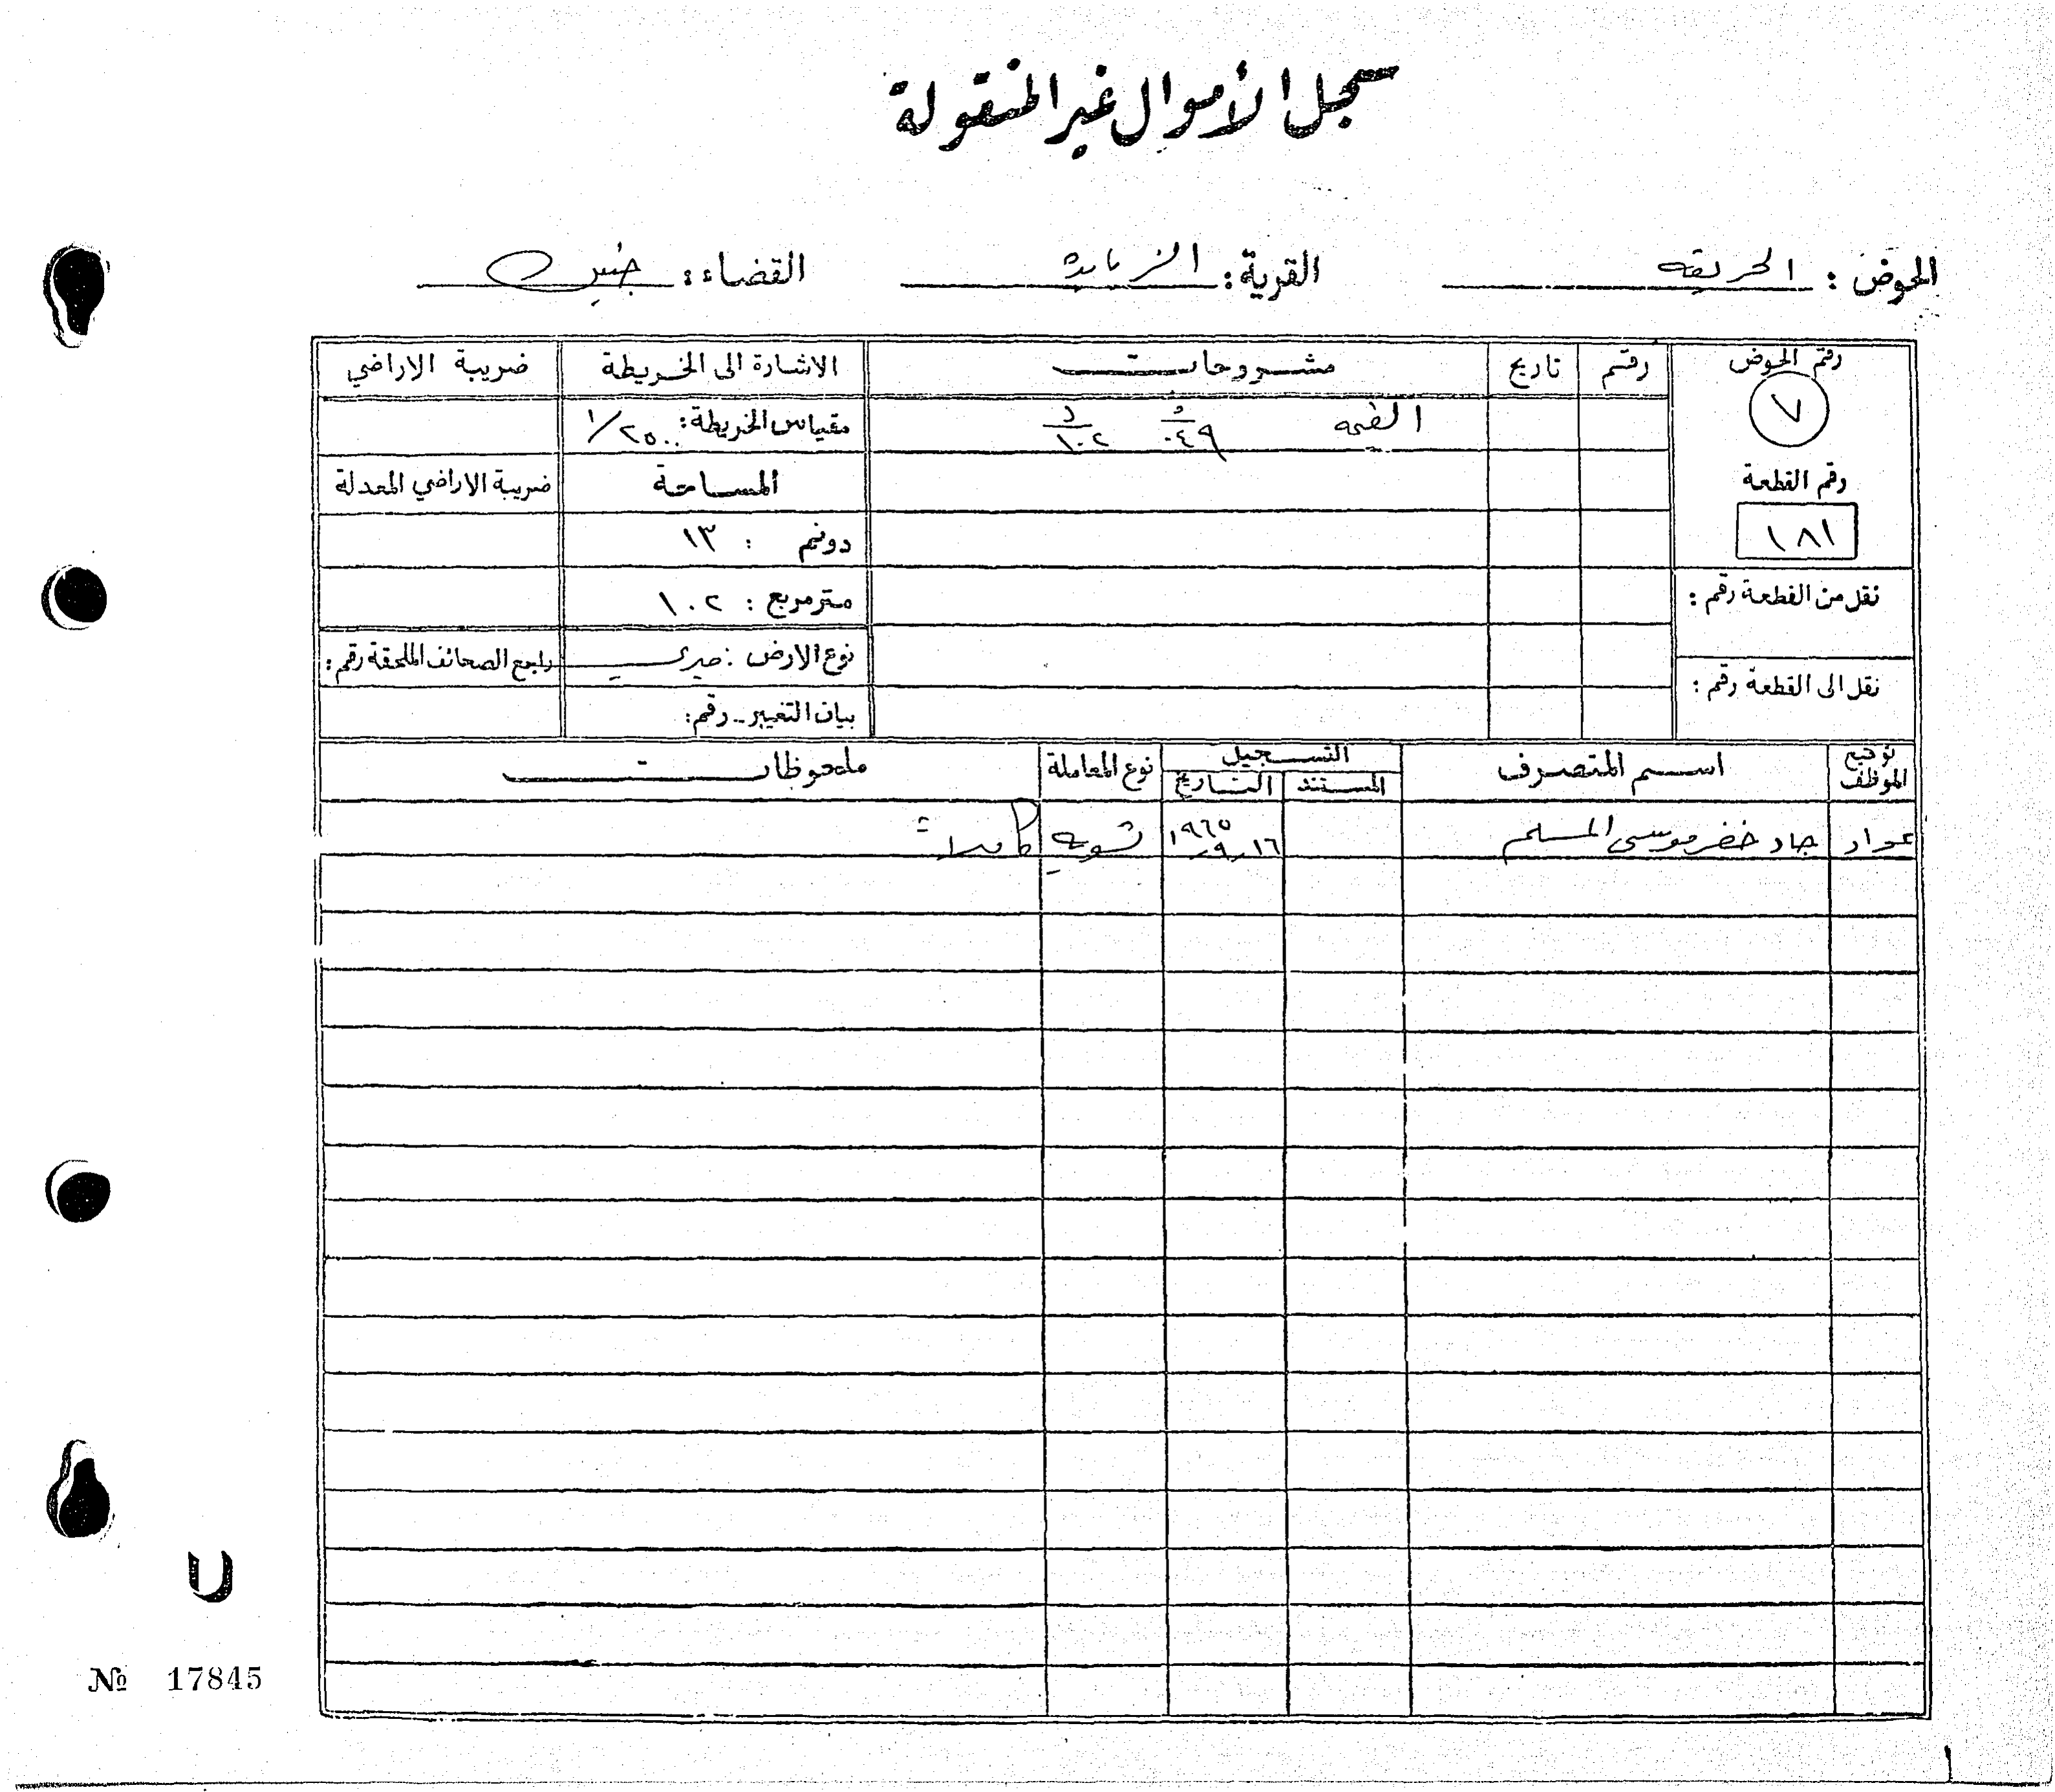 سجل الأموال غير المنقولة
الحوض : الحريقه القرية : الزبابده القضاء : جنين
رقم الحوض رقم تاريخ مشروحات الاشارة الى الخريطة ضريبة الاراضي
٧ القيمه مقياس الخريطة : ١/٢٥٠٠
رقم القطعة المساحة ضريبة الاراضي المعدلة
١٨١ دونم : ١٣
نقل من القطعة رقم : مترمربع : ١٠٢
نوع الارض : ميري راجع الصحائف الملحقة رقم :
نقل الى القطعة رقم :
بيان التغيير - رقم :
توقيع الموظف اسم المتصرف التسجيل نوع المعاملة ملحوظات
المستند التاريخ
عواد جاد خضر موسى المسلم ١٩٦٥ ١٦-٩ تسويه كاملا
№ 17845